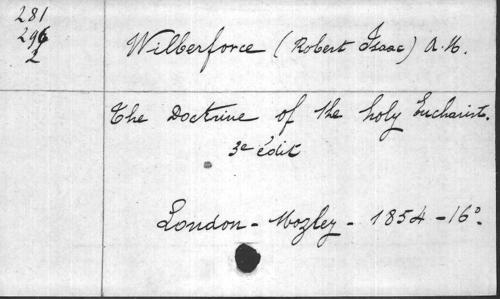 281
296
2
Wilberforce (Robert Isaac) A.M.
The Doctrine of the holy Eucharist.
3e édit
London - Mozley - 1854 - 16°.